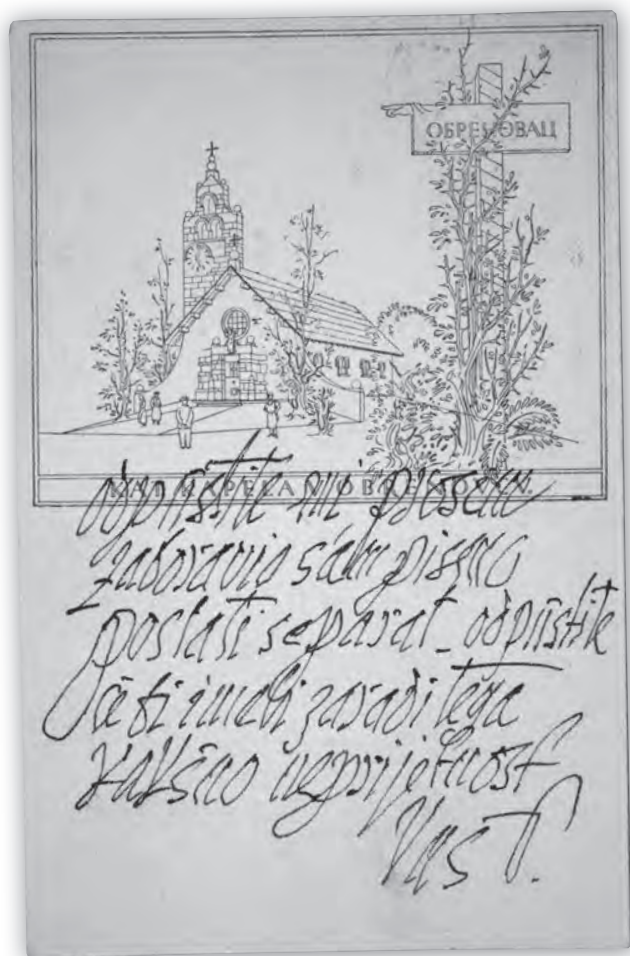 ОБРЕНОВАЦ
KAPELA
odpustite mi prosim
zaboravio sam pismo
poslati separat – odpustite
če bi imeli zaradi tega
kakšno neprijetnost
Vaš